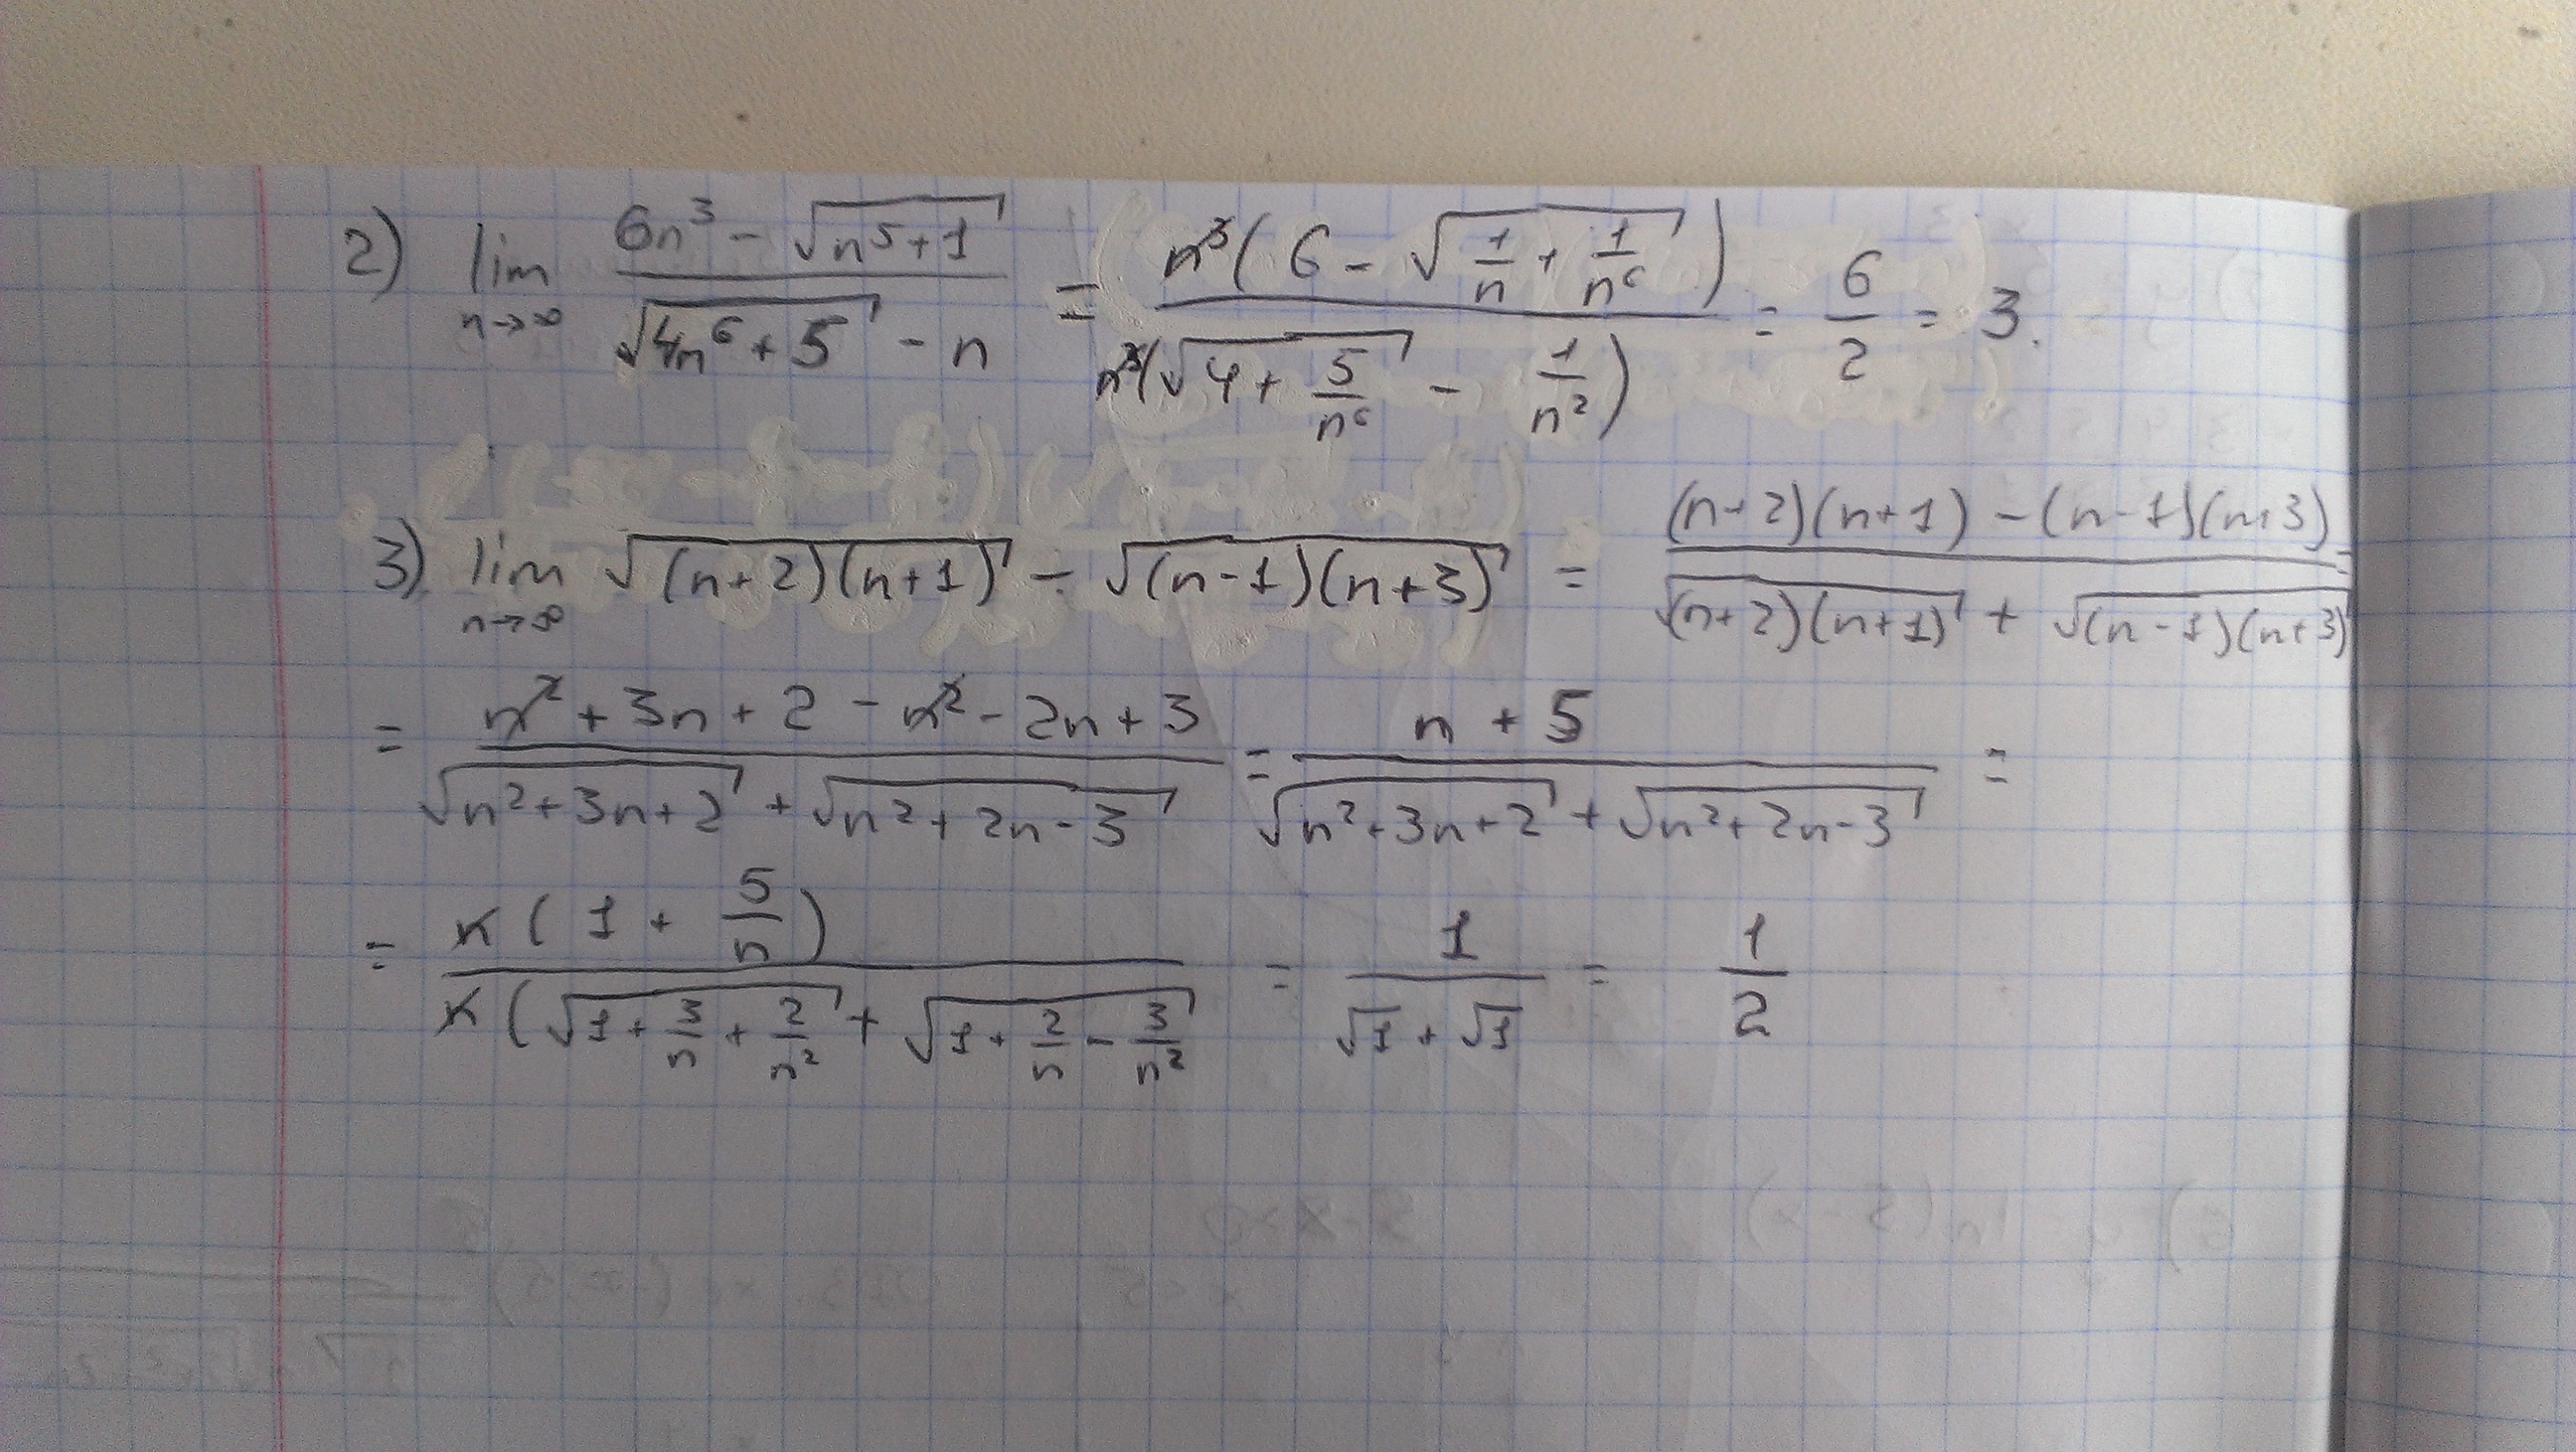 2) lim n→∞ (6n³ - √(n⁵+1)) / (√(4n⁶+5) - n) = n³(6 - √(1/n + 1/n⁶)) / n³(√(4 + 5/n⁶) - 1/n²) = 6/2 = 3.
3) lim n→∞ √((n+2)(n+1)) - √((n-1)(n+3)) = ((n+2)(n+1) - (n-1)(n+3)) / (√((n+2)(n+1)) + √((n-1)(n+3))) =
= (n² + 3n + 2 - n² - 2n + 3) / (√(n²+3n+2) + √(n²+2n-3)) = (n + 5) / (√(n²+3n+2) + √(n²+2n-3)) =
= n(1 + 5/n) / n(√(1 + 3/n + 2/n²) + √(1 + 2/n - 3/n²)) = 1 / (√1 + √1) = 1/2